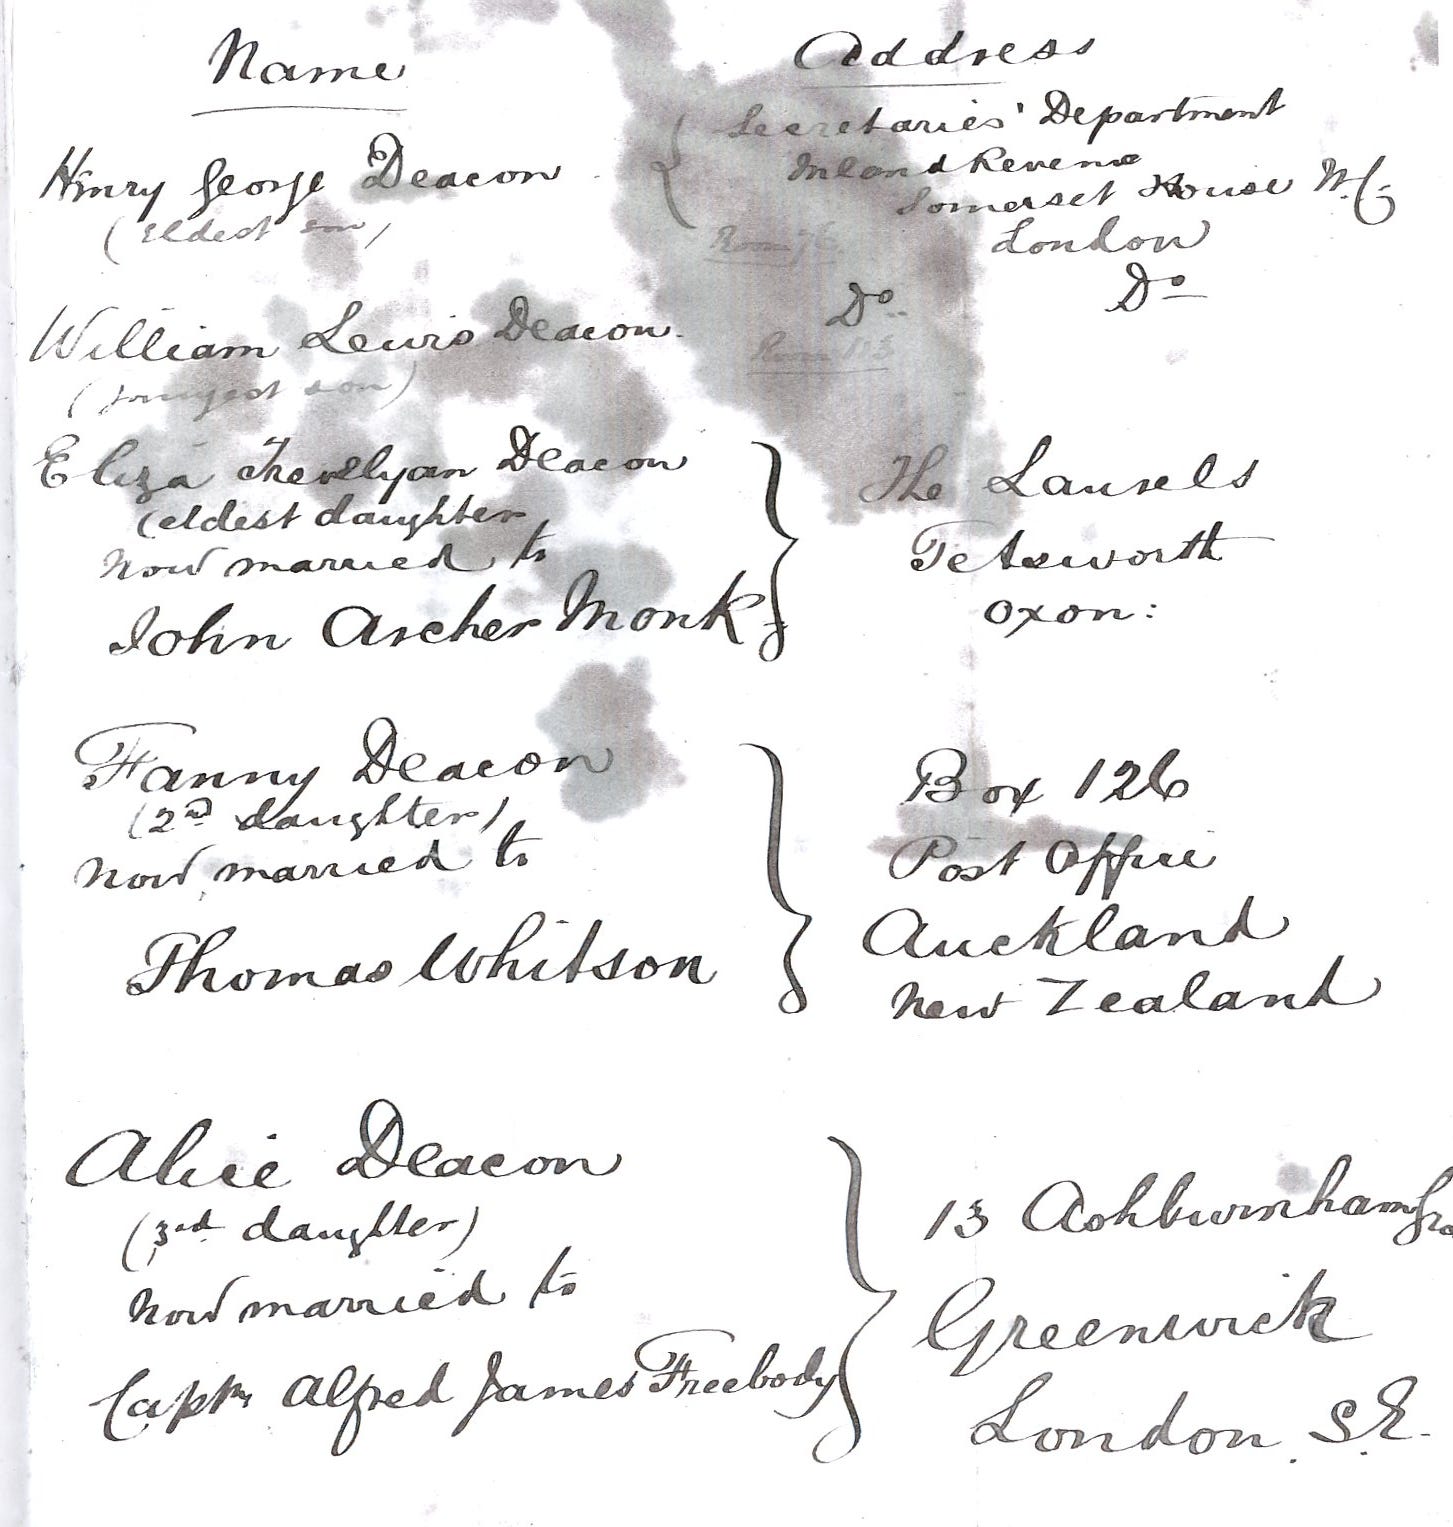 Name
Address
Henry George Deacon
(eldest son)
Secretaries' Department
Inland Revenue
Somerset House W.C.
London
Room 76
William Lewis Deacon.
(youngest son)
Do.
Do
Room 113
Eliza Trevelyan Deacon
(eldest daughter
now married to
John Archer Monk
The Laurels
Tetsworth
Oxon:
Fanny Deacon
(2nd daughter)
now married to
Thomas Whitson
Box 126
Post Office
Auckland
New Zealand
Alice Deacon
(3rd daughter)
now married to
Captn Alfred James Freebody
13 Ashburnham Gro
Greenwich
London. S.E.